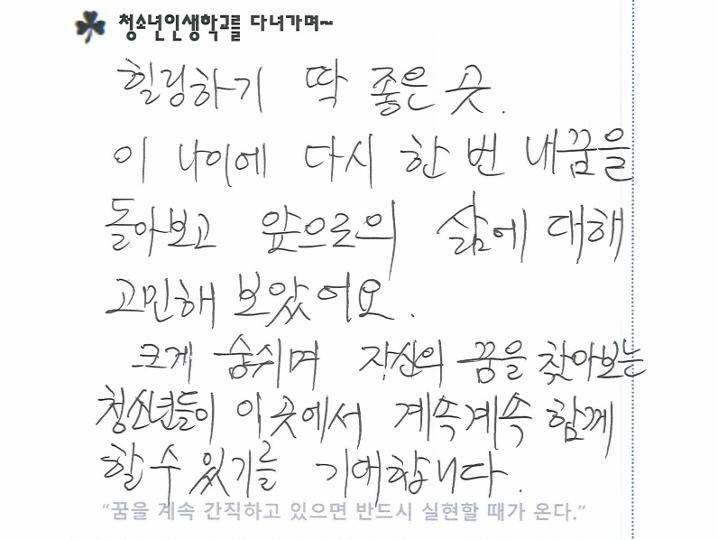 청소년인생학교를 다녀가며~
힐링하기 딱 좋은 곳.
이 나이에 다시 한 번 내꿈을
돌아보고 앞으로의 삶에 대해
고민해 보았어요.
크게 숨쉬며 자신의 꿈을 찾아보는
청소년들이 이곳에서 계속계속 함께
할 수 있기를 기대합니다.
“꿈을 계속 간직하고 있으면 반드시 실현할 때가 온다.”